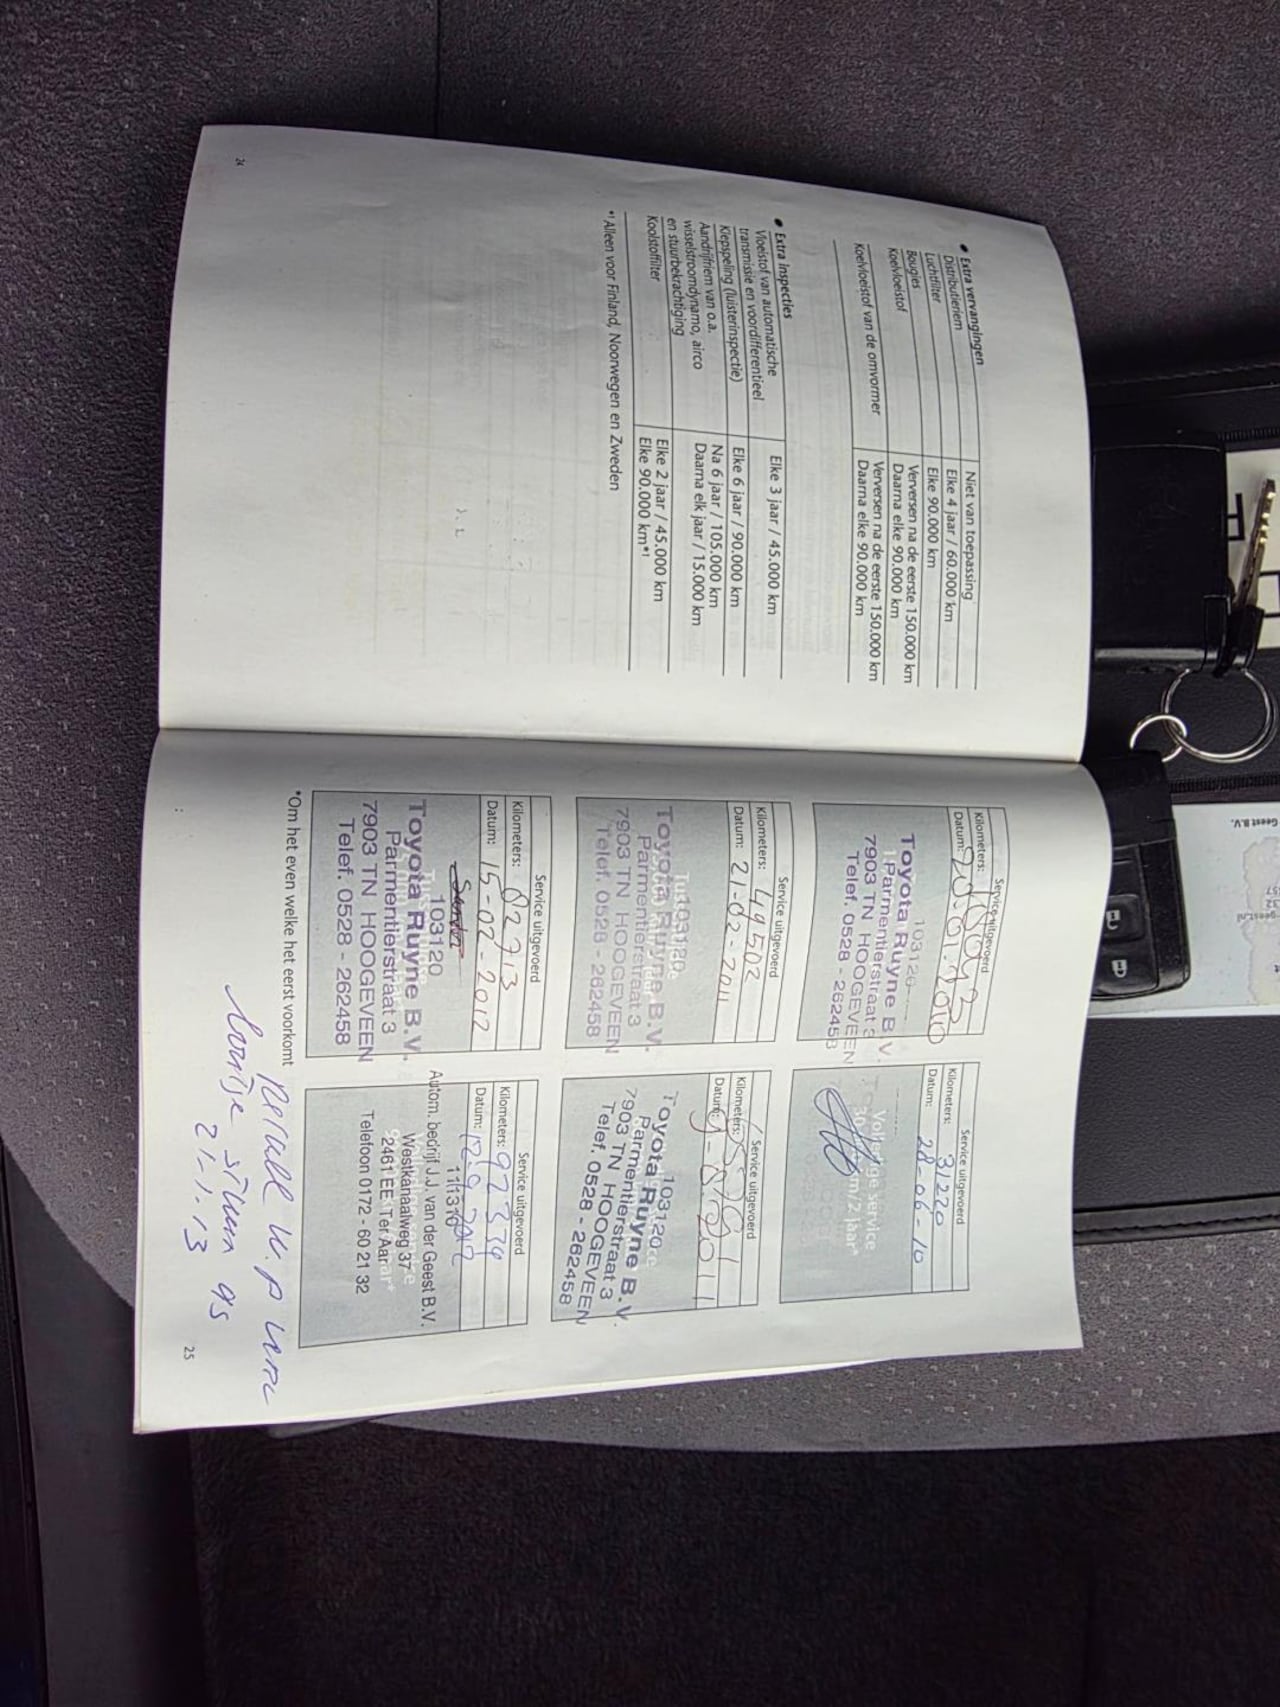 • Extra vervangingen
Distributieriem Niet van toepassing
Luchtfilter Elke 4 jaar / 60.000 km
Bougies Elke 90.000 km
Koelvloeistof Verversen na de eerste 150.000 km
Daarna elke 90.000 km
Koelvloeistof van de omvormer Verversen na de eerste 150.000 km
Daarna elke 90.000 km
• Extra inspecties
Vloeistof van automatische
transmissie en voordifferentieel Elke 3 jaar / 45.000 km
Klepspeling (luisterinspectie) Elke 6 jaar / 90.000 km
Aandrijfriem van o.a. Na 6 jaar / 105.000 km
wisselstroomdynamo, airco Daarna elk jaar / 15.000 km
en stuurbekrachtiging
Koolstoffilter Elke 2 jaar / 45.000 km
Elke 90.000 km*¹
*¹ Alleen voor Finland, Noorwegen en Zweden
24
Service uitgevoerd
Kilometers:
Datum:
103120
Toyota Ruyne B.V.
Parmentierstraat 3
7903 TN HOOGEVEEN
Telef. 0528 - 262458
Service uitgevoerd
Kilometers: 31220
Datum: 28-06-10
Volledige service
30 km/2 jaar*
Service uitgevoerd
Kilometers: 49502
Datum: 21-02-2011
103120
Toyota Ruyne B.V.
Parmentierstraat 3
7903 TN HOOGEVEEN
Telef. 0528 - 262458
Service uitgevoerd
Kilometers:
Datum:
103120
Toyota Ruyne B.V.
Parmentierstraat 3
7903 TN HOOGEVEEN
Telef. 0528 - 262458
Service uitgevoerd
Kilometers: 82713
Datum: 15-02-2012
103120
Toyota Ruyne B.V.
Parmentierstraat 3
7903 TN HOOGEVEEN
Telef. 0528 - 262458
Service uitgevoerd
Kilometers: 92339
Datum: 12-9-2012
Autom. bedrijf J.J. van der Geest B.V.
Westkanaalweg 37
2461 EE Ter Aar
Telefoon 0172 - 60 21 32
*Om het even welke het eerst voorkomt
21.1.13
25
Geest B.V.